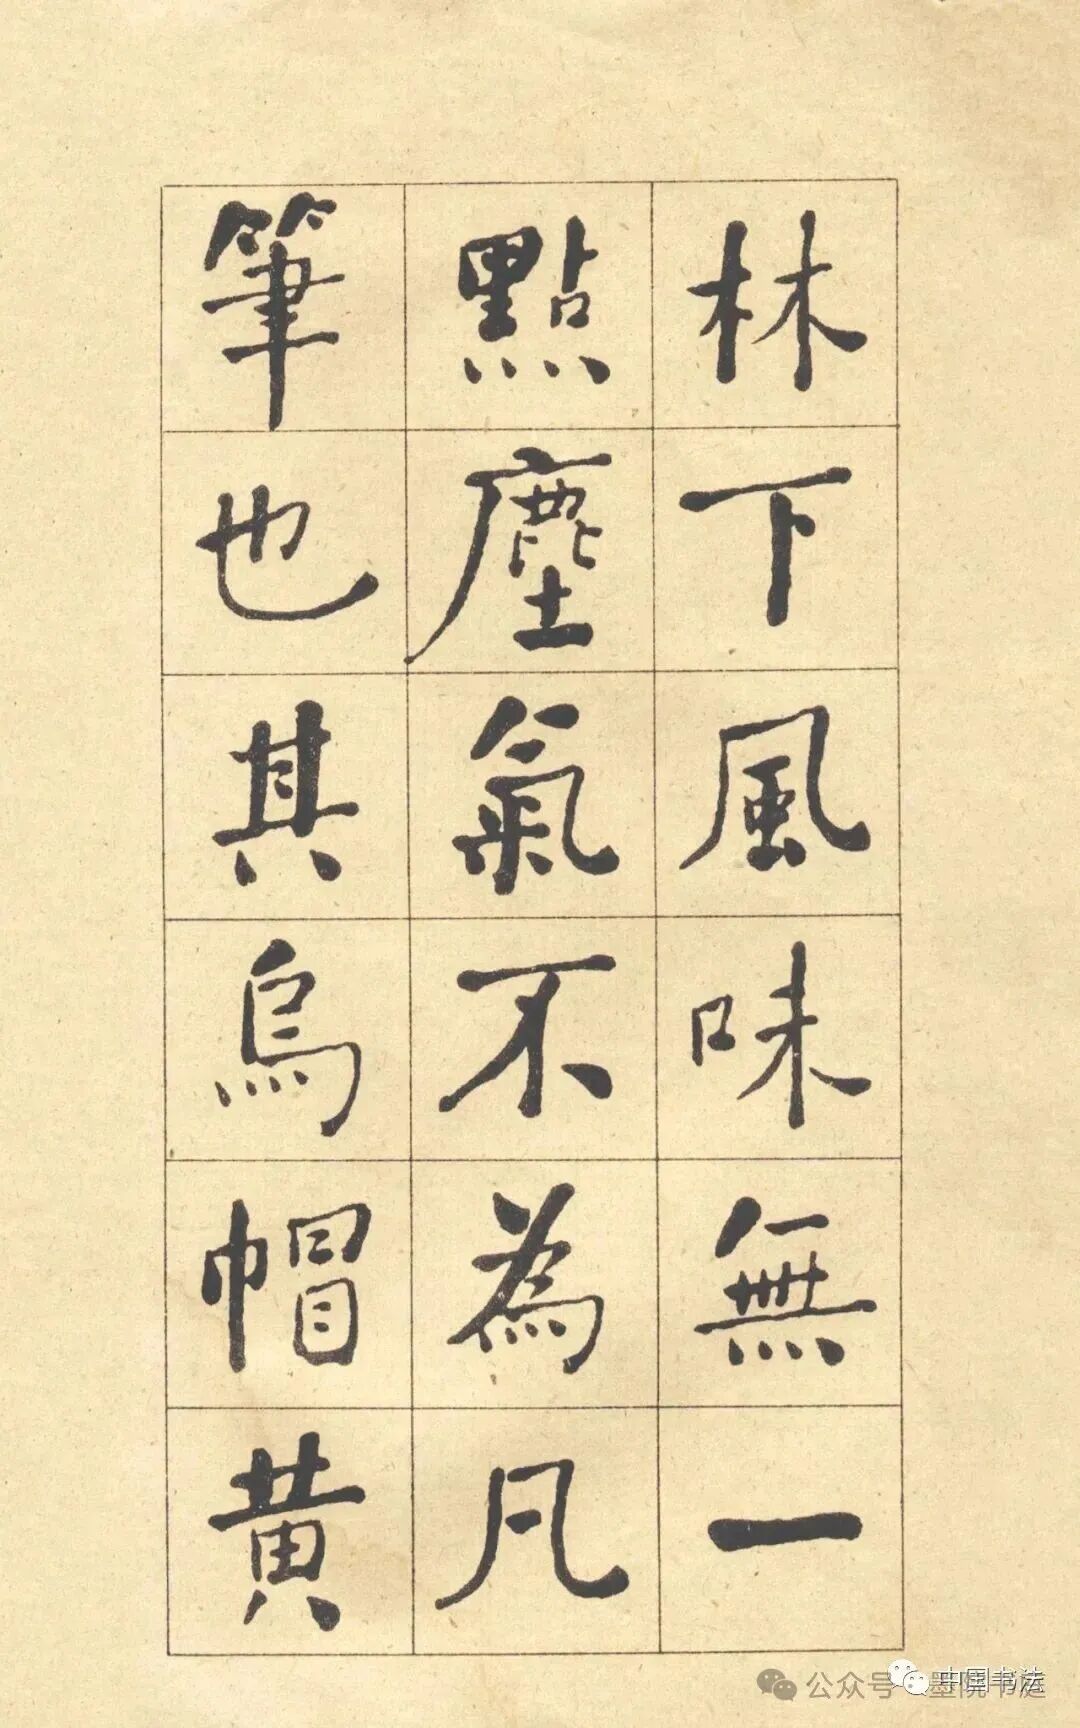 林下風味無一
點塵氣不為凡
筆也其烏帽黃
公众号·墨院书庭
中国书法